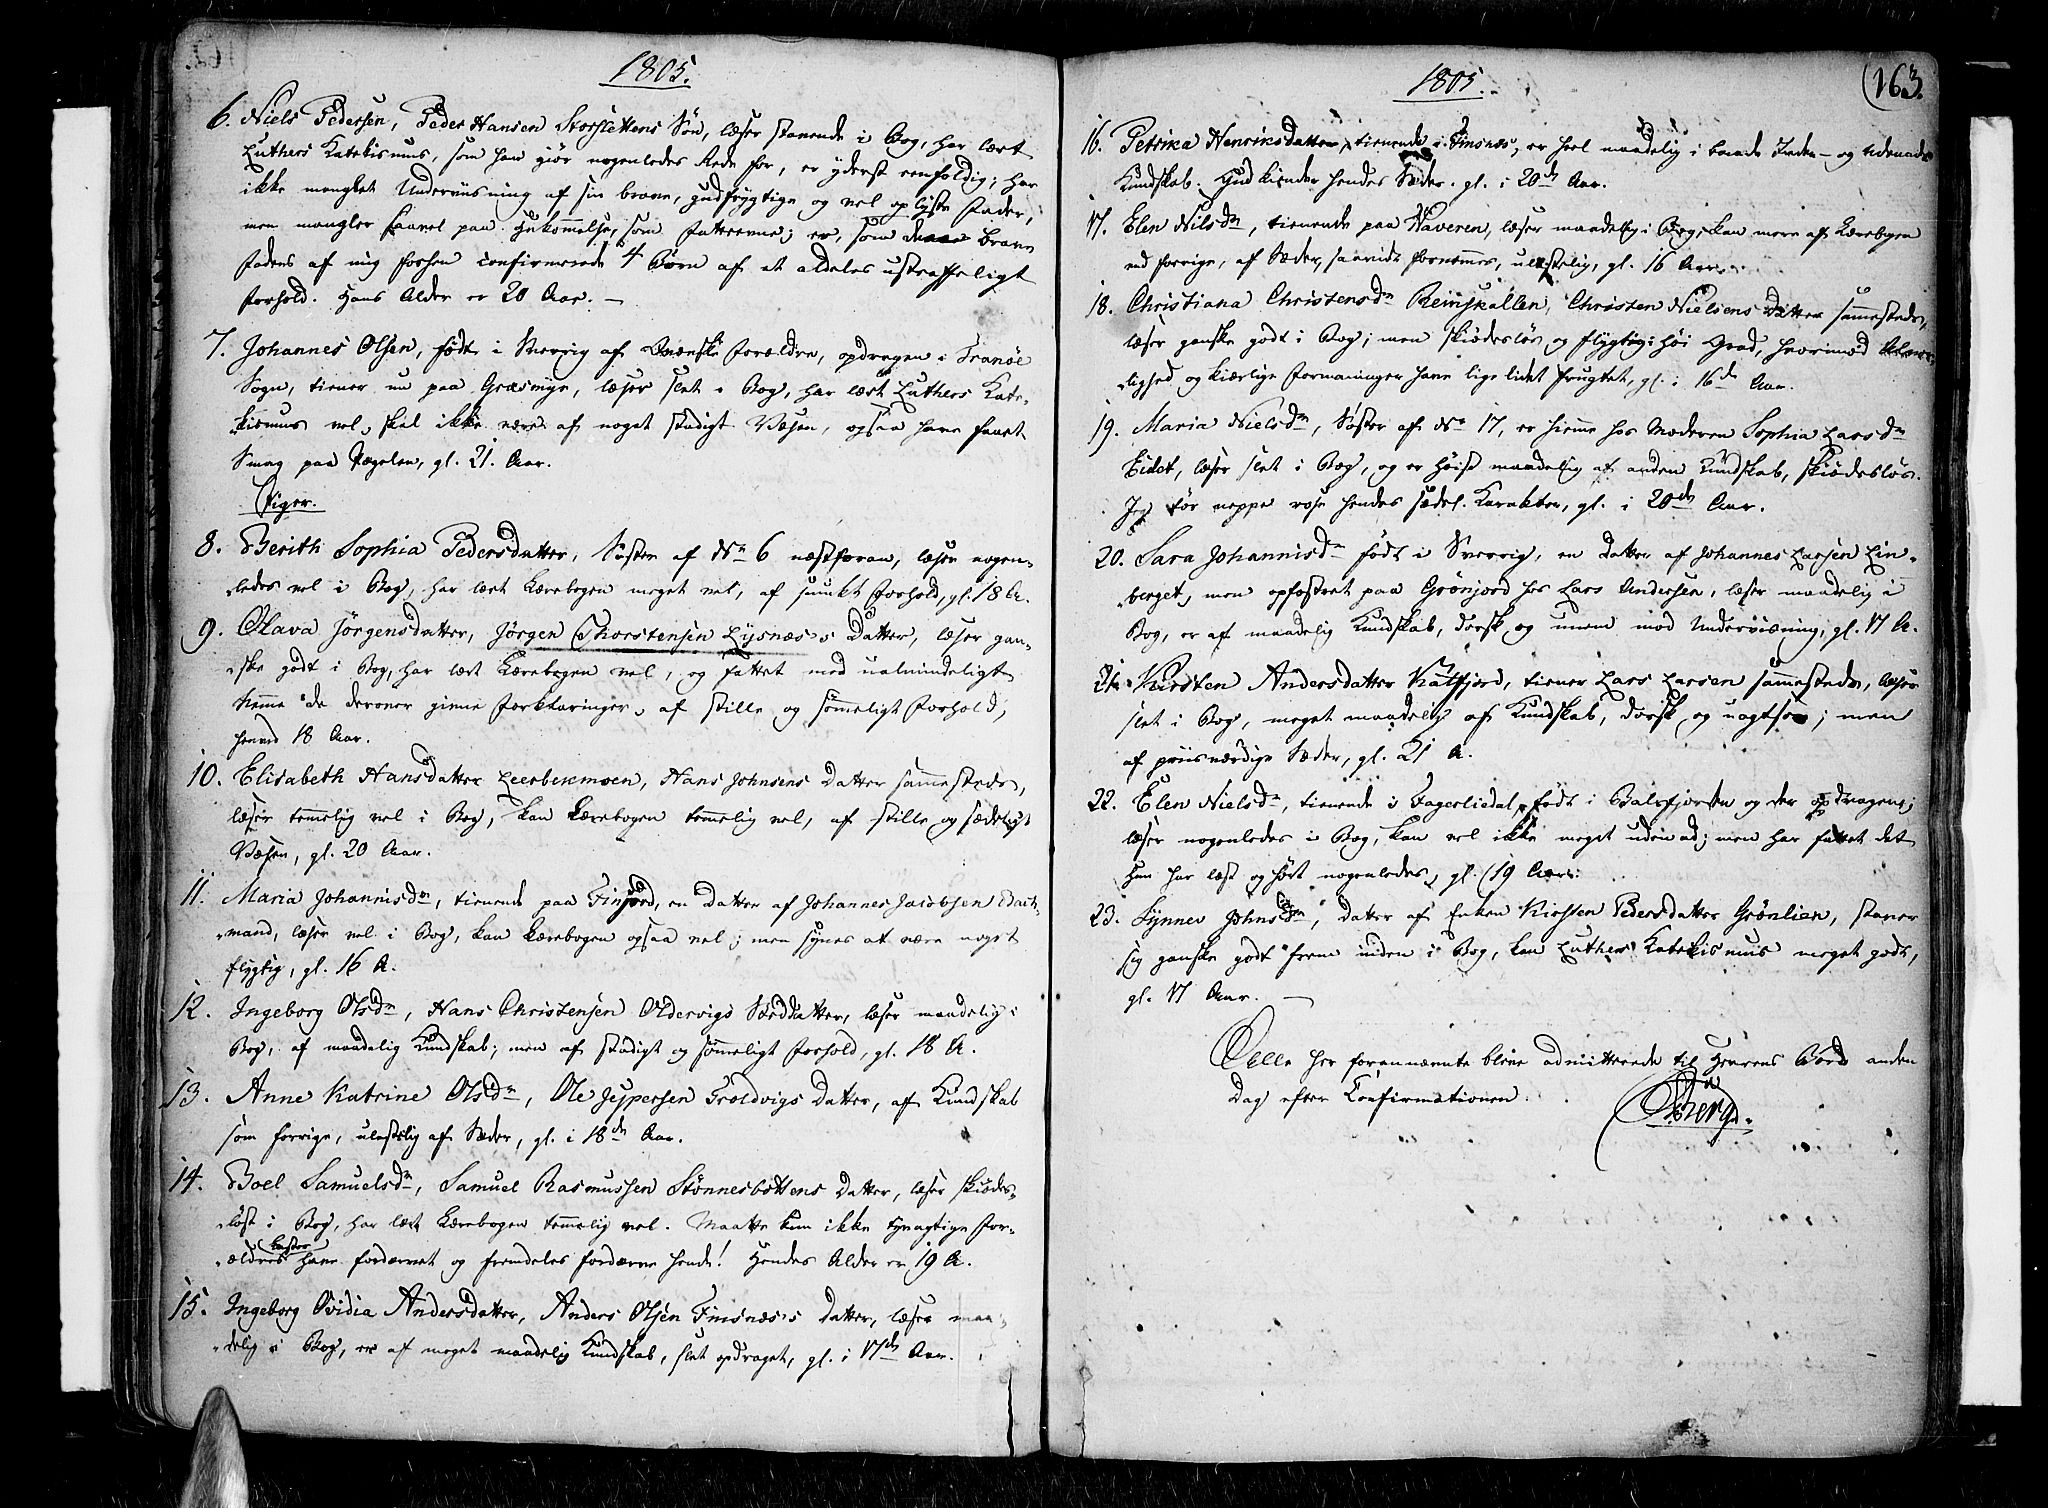 1805.
6. Niels Pedersen, Peder Hansen Storslettens Søn, læser stavende i Bog, har lært
Luthers Katekismus, som han giør nogenledes Rede for, er yderst eenfoldig; har
ikke manglet Underviisning af sin brave, gudfrygtige og vel oplyste Fader,
men mangler saavel paa Hukommelse, som Fatteevne; er, som brave
Faders af mig forhen confirmerede 4 Børn af et aldeles ustraffeligt
Forhold. Hans Alder er 20 Aar. —
7. Johannes Olsen, født i Sverrig af Svenske Forældre, opdragen i Tranøe
Sogn, tiener nu paa Græsmyr, læser slet i Bog, har læst Luthers Kate-
kismus vel, skal ikke være af noget stadigt Væsen, ogsaa have faaet
Smag paa Pægelen, gl. 21. Aar.
Piger.
8. Berith Sophia Pedersdatter, Søster af No 6 næstforan, læser nogen-
ledes vel i Bog, har lært Lærebogen meget vel, af smukt Forhold, gl. 18 A.
9. Olava Jörgensdatter, Jörgen Thorstensen Lysnæs's Datter, læser gan-
ske godt i Bog, har lært Lærebogen vel, og fattet med ualmindeligt
Nemme de derover givne Forklaringer, af stille og sømmeligt Forhold,
henved 18 Aar.
10. Elisabeth Hansdatter Leerbekmoen, Hans Johnsens Datter sammesteds,
læser temmelig vel i Bog, kan Lærebogen temmelig vel, af stille og sædeligt
Væsen, gl. 20 Aar.
11. Maria Johannisdr, tienende paa Finfjord, en Datter af Johannes Jacobsen
mand, læser vel i Bog, kan Lærebogen ogsaa vel; men synes at være noget
flygtig, gl. 16 A.
12. Ingeborg Olsdr, Hans Christensen Oldervigs Stifdatter, læser maadelig i
Bog, af maadelig Kundskab; men af stadigt og sømmeligt Forhold, gl. 18 A.
13. Anne Katrine Olsdr, Ole Jespersen Troldvigs Datter, af Kundskab
som forrige, ulastelig af Sæder, gl. i 18de Aar.
14. Boel Samuelsdr, Samuel Rasmussen Stönnesbottens Datter, læser skiødes-
løst i Bog, har lært Lærebogen temmelig vel. Maatte kun ikke ryggesløse For-
ældres have fordærvet og fremdeles fordærve hende! Hendes Alder er 19 A.
15. Ingeborg Ovidia Andersdatter, Anders Olsen Finsnæs's Datter, læser maa-
delig i Bog, er af meget maadelig Kundskab, slet opdraget, gl. i 17de Aar.
1805.
163.
16. Petrika Henriksdatter, tienende i Finsnæs, er heel maadelig i baade Inden- og Udenads
Kundskab. Gud kiender hendes Sæder. gl. i 20de Aar.
17. Elen Nilsdr, tienende paa Kaveren, læser maadelig i Bog, kan mere af Lærebogen
end forrige, af Sæder, saavidt fornemmes, ulastelig, gl. 16 Aar.
18. Christiana Christensdr Reinskallen, Christen Nielsens Datter sammesteds,
læser ganske godt i Bog; men skiødesløs og flygtig i høi Grad, hvorimod Alvor-
lighed og kiærlige Formaninger have lige lidet frugtet, gl. i 16de Aar.
19. Maria Nielsdr, Søster af No 17, er hiemme hos Moderen Sophia Larsdr
Eidet, læser slet i Bog, og er høist maadelig af anden Kundskab, skiødesløs.
Jeg tør neppe rose hendes sædel. Karakter, gl. i 20de Aar.
20. Sara Johannisdr født i Sverrig, en Datter af Johannes Larsen Lin-
berget, men opfostret paa Grönjord hos Lars Andersen, læser maadelig i
Bog, er af maadelig Kundskab, dorsk og uvan mod Underviisning, gl. 17 A.
21. Kirsten Andersdatter Kalfjord, tiener Lars Larsen sammesteds, læser
slet i Bog, meget maadelig af Kundskab, dorsk og uagtsom; men
af priisværdige Sæder, gl. 21 A.
22. Elen Nielsdr, tienende i Fagerliedal, født i Balsfjorden og der opdragen;
læser nogenledes i Bog, kan vel ikke meget udenad; men har fattet det
hun har læst og hørt nogenledes, gl. 19 Aar.
23. Synnev Johnsdr, Datter af Enken Kirsten Pedersdatter Grönlien, staver
sig ganske godt frem inden i Bog, kan Luthers Katekismus meget godt,
gl. 17 Aar. —
Alle her forannævnte bleve admitterede til Herrens Bord anden
Dag efter Confirmationen.
Berg.